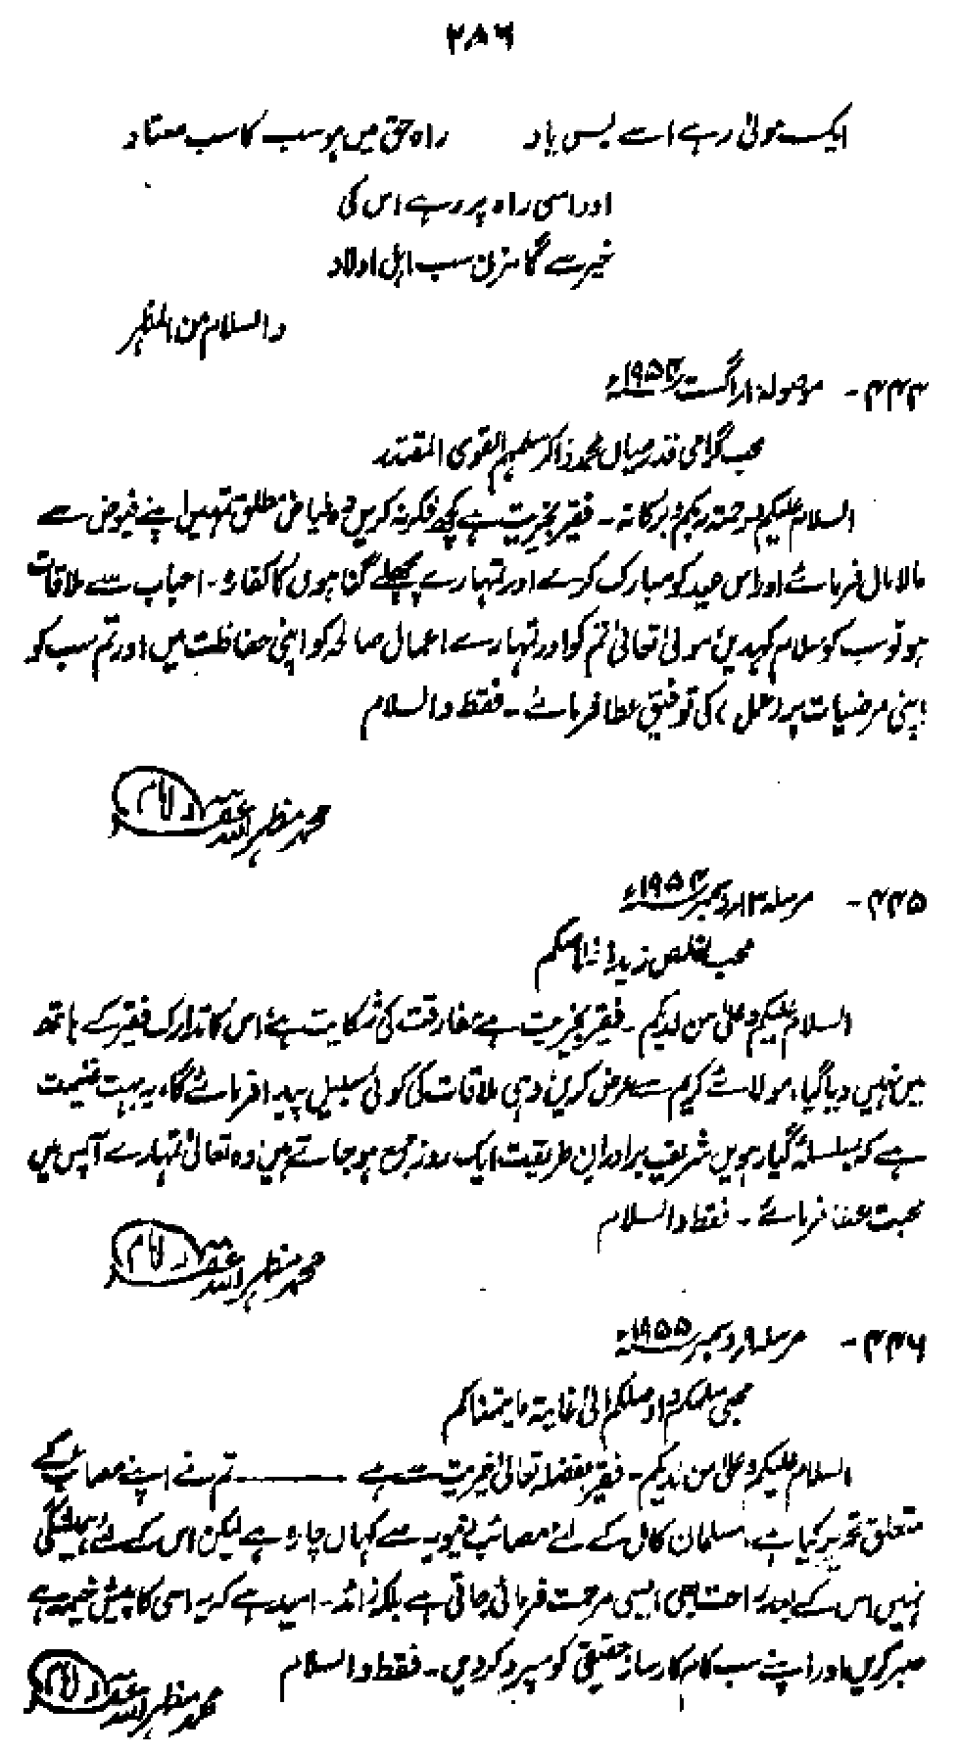 ۲۸۶
ایک مولیٰ رہے اسے بس یاد راہ حق میں ہو سب کا سب معتاد
اور اسی راہ پر رہے اس کی
خیر سے گامزن سب اہل اولاد
والسلام من المظہر
۴۴۴- موصولہ ۱۰ر اگست ۱۹۵۴ء
محب گرامی قدر میاں محمد ذاکر سلمہم القوی المقتدر
السلام علیکم ورحمۃ ربکم وبرکاتہ۔ فقیر بخیریت ہے کچھ فکر نہ کریں وہ فیاض مطلق تمہیں اپنے فیوض سے
مالا مال فرمائے اور اس عید کو مبارک کرے اور تمہارے پچھلے گناہوں کا کفارہ۔ احباب سے ملاقات
ہو تو سب کو سلام کہدیں مولیٰ تعالیٰ تم کو اور تمہارے اعمال صالحہ کو اپنی حفاظت میں اور تم سب کو
اپنی مرضیات پر (عمل) کی توفیق عطا فرمائے۔ فقط والسلام
محمد مظہر اللہ غفرلہ امام
۴۴۵- مرسلہ ۱۳ر دسمبر ۱۹۵۴ء
محب مخلص زید
السلام علیکم وعلیٰ من لدیکم۔ فقیر بخیریت ہے مفارقت کی شکایت ہے، اس کا تدارک فقیر کے ہاتھ
میں نہیں دیا گیا، مولائے کریم سے عرض کریں وہی ملاقات کی کوئی سبیل پیدا فرمائے گا، یہ بہت غنیمت
ہے کہ بسلسلہ گیارہویں شریف برادران طریقت ایک روز جمع ہو جاتے ہیں وہ تعالیٰ تمہارے آپس میں
محبت عطا فرمائے۔ فقط والسلام
محمد مظہر اللہ غفرلہ امام
۴۴۶- مرسلہ ۹ر دسمبر ۱۹۵۵ء
محبی سلمکم و اوصلکم الیٰ غایۃ ما یتمناکم
السلام علیکم وعلیٰ من لدیکم۔ فقیر بفضلہ تعالیٰ خیریت سے ہے ——— تم نے اپنے مصائب کے
متعلق تحریر کیا ہے، مسلمان کامل کے لئے مصائب دنیویہ سے کہاں چارہ ہے لیکن اس کے لئے ہمیشگی
نہیں اس کے بعد راحت بھی ایسی مرحمت فرمائی جاتی ہے بلکہ زائد۔ امید ہے کہ یہ اسی کا پیش خیمہ ہے
صبر کریں اور اپنے سب کام کارساز حقیقی کو سپرد کر دیں۔ فقط والسلام
محمد مظہر اللہ غفرلہ امام